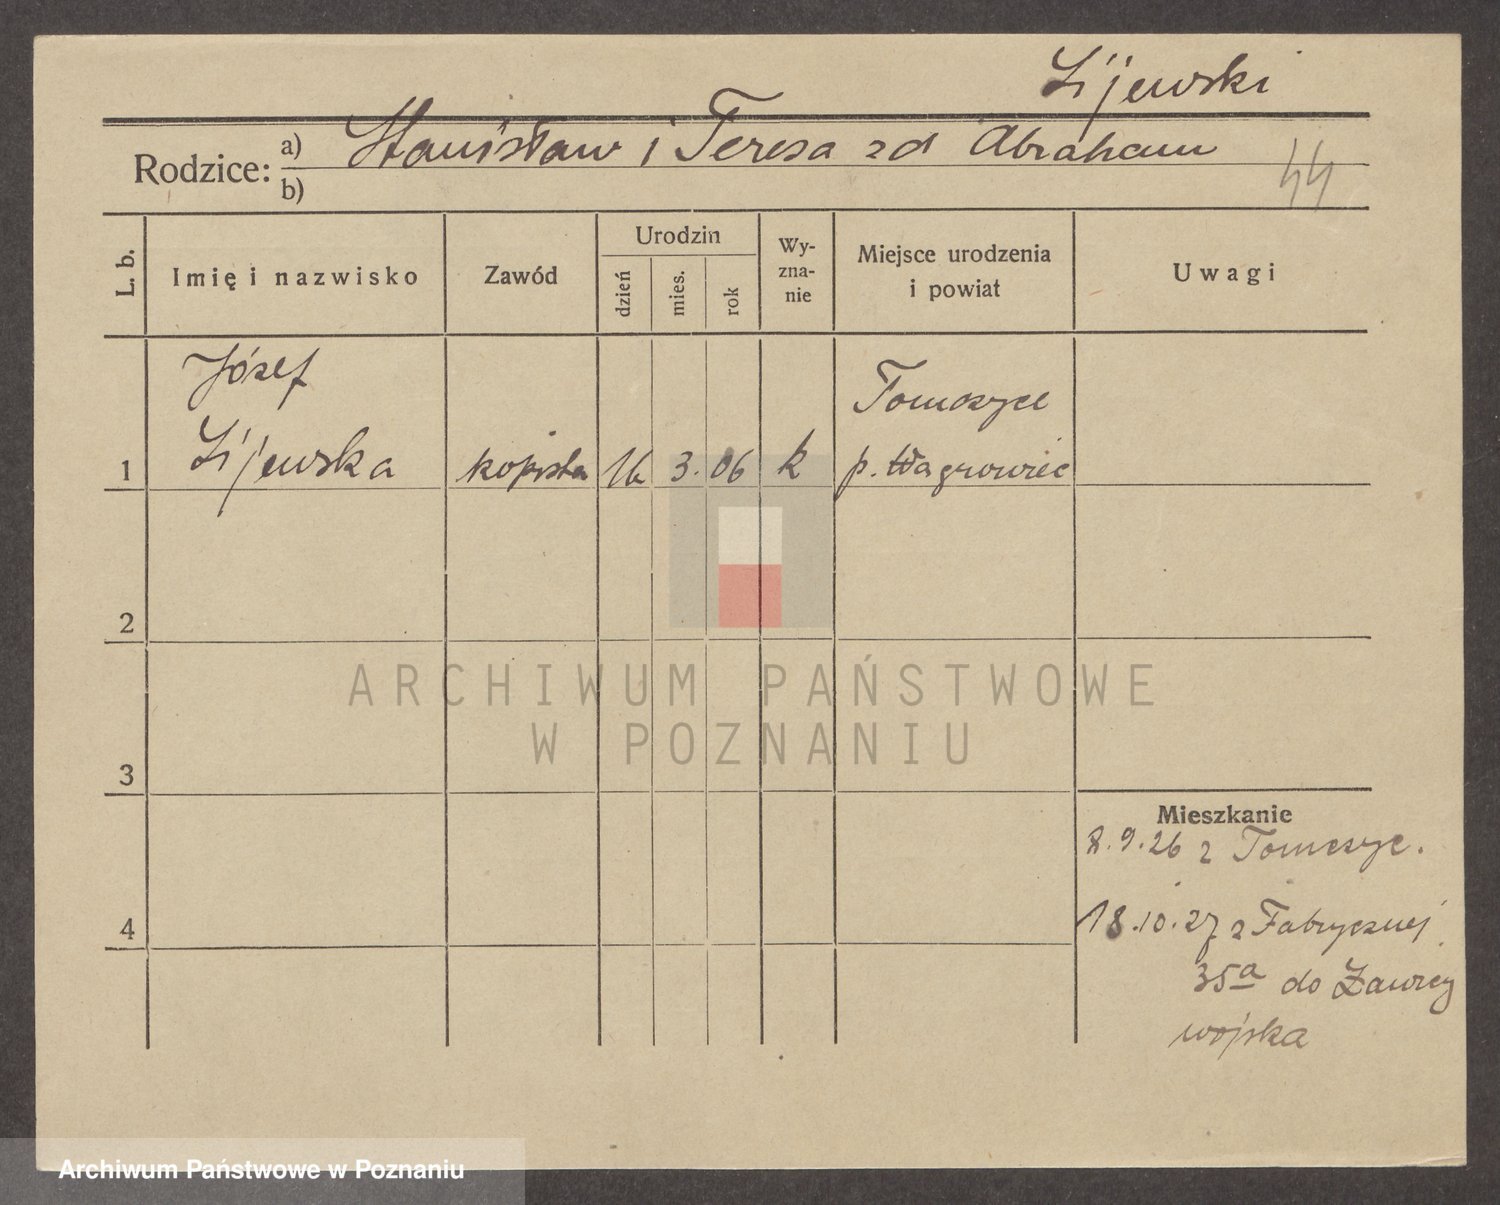 Lijewski
Rodzice: a) Stanisław i Teresa zd Abraham
b)
44
L. b.
Imię i nazwisko
Zawód
Urodzin
dzień
mies.
rok
Wy-
zna-
nie
Miejsce urodzenia
i powiat
Uwagi
Józef
Tomczyce
1 Lijewska kopista 16 3. 06 k p. Wągrowiec
2
ARCHIWUM PAŃSTWOWE
W POZNANIU
3
Mieszkanie
8.9.26 z Tomczyc.
4
18.10.27 z Fabrycznej
35a do
wojska
Archiwum Państwowe w Poznaniu